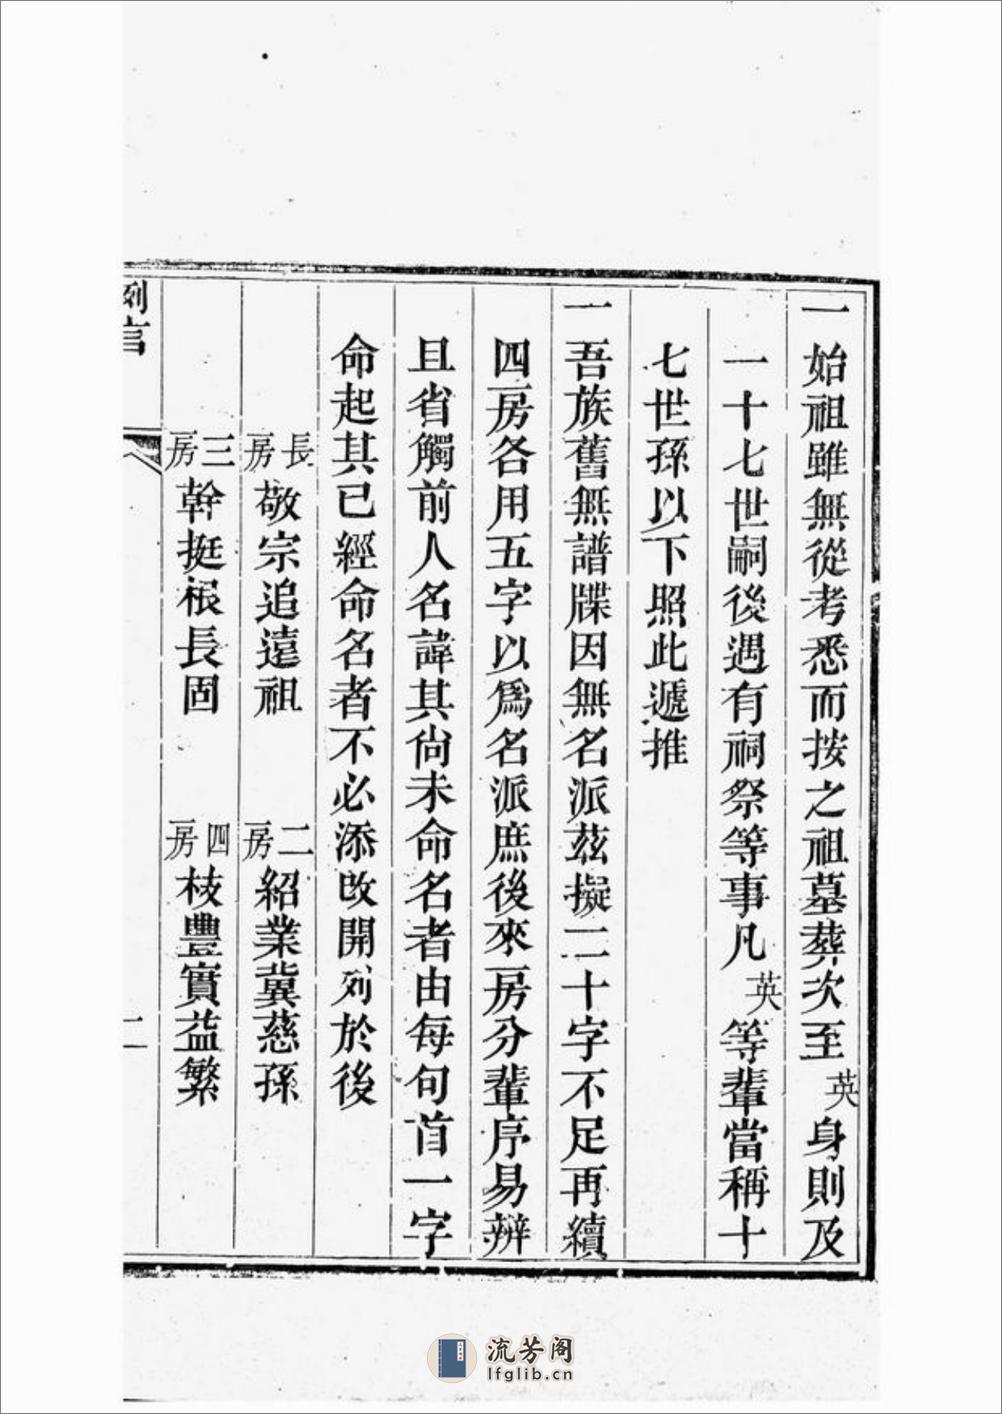 一始祖雖無從考悉而按之祖墓葬次至英身則及
一十七世嗣後遇有祠祭等事凡英等輩當稱十
七世孫以下照此遞推
一吾族舊無譜牒因無名派茲擬二十字不足再續
四房各用五字以爲名派庶後來房分輩序易辨
且省觸前人名諱其尙未命名者由每句首一字
命起其已經命名者不必添改開列於後
長房敬宗追遠祖 二房紹業冀慈孫
三房幹挺根長固 四房枝豐實益繁
例言 二
流芳阁
lfglib.cn